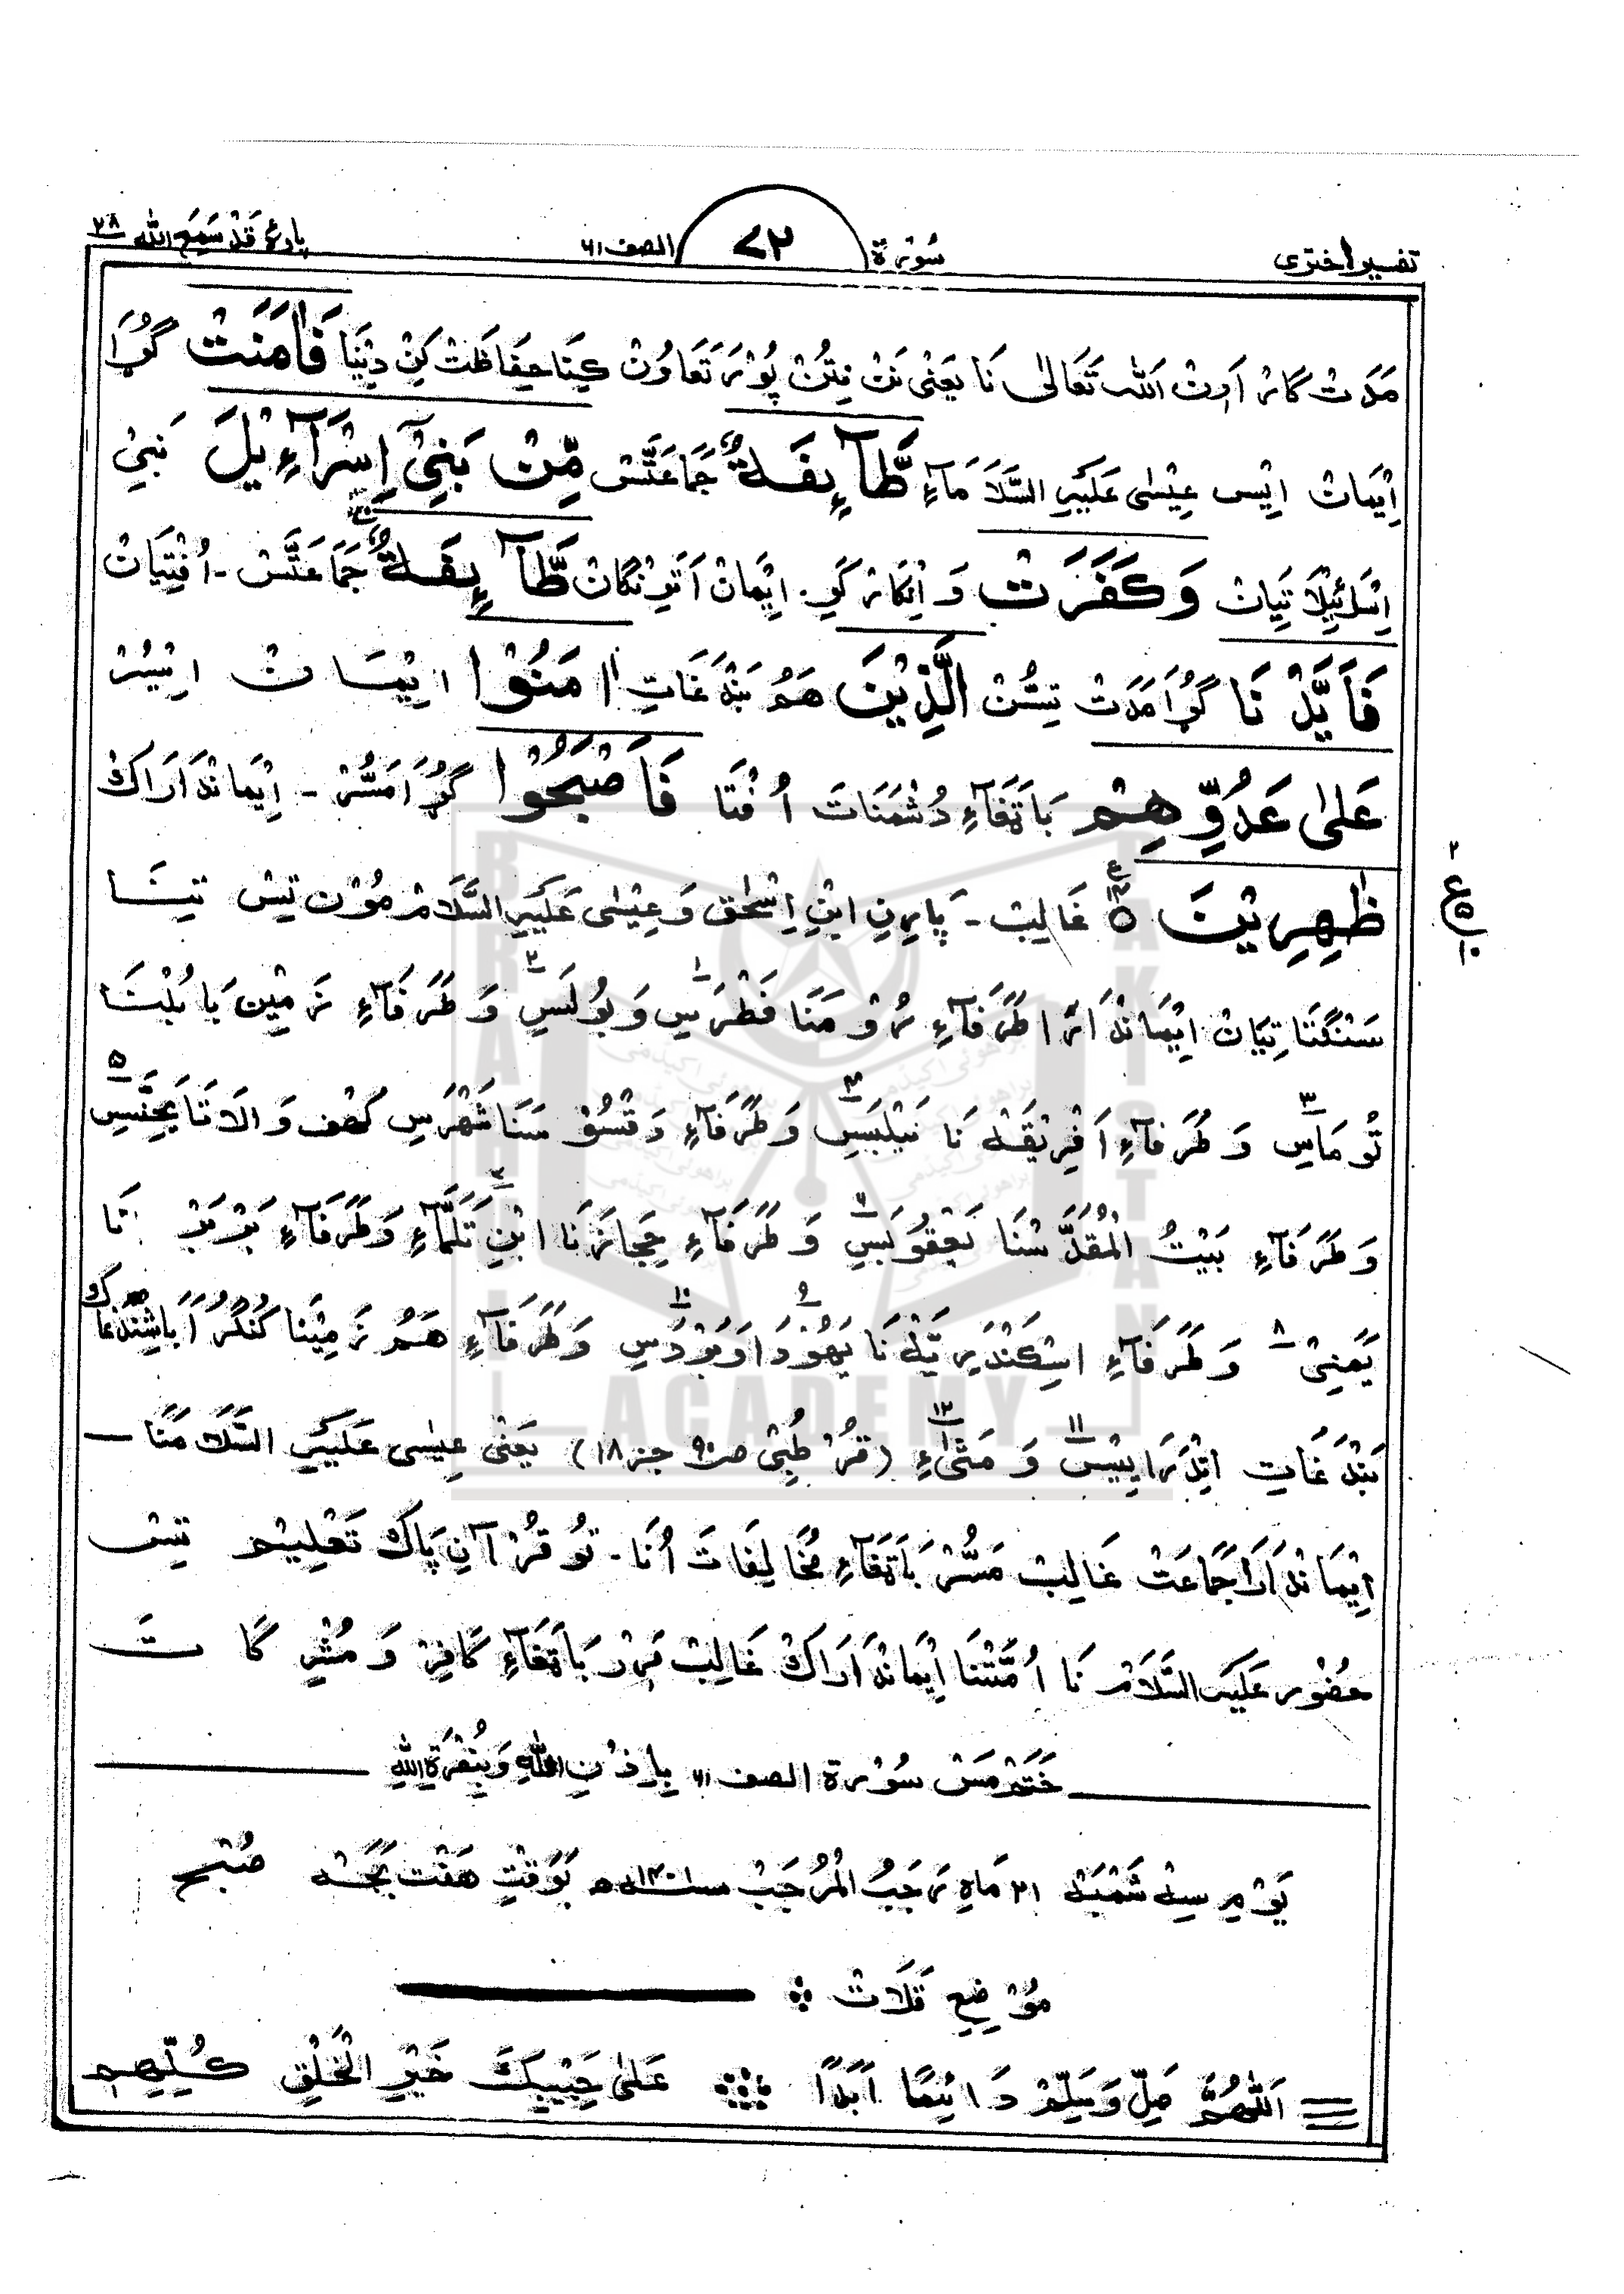 تفسیر اختری سُوْرَۃ ۷۲ الصف ۶۱ پارہ قَدْ سَمِعَ اللّٰہ ۲۸
مَدَت گار اَرِن اَللہ تَعَالٰی نَا یَعْنٖی نَن نِتُن پُوْرَ تَعَاوُن کِیْنَا حِفَاظَت کِن دِیْنَا فَاٰمَنَتْ گُڑا
اِیْمَان اِیْس عِیْسٰی عَلَیْہِ السَّلَامَاءِ طَّآئِفَۃٌ جَمَاعَتَّس مِّنْۢ بَنِیْۤ اِسْرَآءِیْلَ بَنِیْ
اِسْرَائِیْلَا تِیَان وَکَفَرَتْ وَ اِنْکَار کَرِ۔ اِیْمَان اَتَوْنْگَان طَّآئِفَۃٌ جَمَاعَتَّس ۔ اُفْتِیَان
فَاَیَّدْ نَا گُڑا مَدَت تِسُّن الَّذِیْنَ ھَمُ بَنْدَغَاتِ اٰمَنُوْا اِیْمَان اِیْسُر
عَلٰی عَدُوِّھِمْ بَاتَغَاءِ دُشْمَنَاتَ اُفْتَا فَاَصْبَحُوْا گُڑا مَسُّر ۔ اِیْمَانْدَارَاک
ظٰھِرِیْنَ ○ غَالِب ۔ پَارِنِ ابْنِ اِسْحٰق وَ عِیْسٰی عَلَیْہِ السَّلَام مُوْن تِس تِیْنَا
۲ ع ۵ ۱۰
سَنْگَتَا تِیَان اِیْمَانْدَارَا طَرَفَاءِ رُوْمَنَا فَطْرَسِ ۱ وَ بُولَسِ ۲ وَ طَرَفَاءِ زَمِیْن بَابُلْنَا
تُوْمَاسِ ۳ وَ طَرَفَاءِ اَفْرِیْقَہ نَا فِیْلْبَسِ ۴ وَ طَرَفَاءِ دَقْسُوْسَنَا شَھْرَسِ کہف وَالَاتَا یَحَنَّسِ ۵
وَ طَرَفَاءِ بَیْتُ الْمُقَدَّسْنَا یَعْقُوبَسِ ۶ وَ طَرَفَاءِ حِجَازَنَا ابْنِ تَلْمَاءِ ۷ وَ طَرَفَاءِ بَرْبَرْ نَا
یَمْنِیْ ۸ وَ طَرَفَاءِ اسْکَنْدَرِیَّہ نَا یَھُوْدَا ۹ وَ بَرْدَسِ ۱۰ وَ طَرَفَاءِ ھَمُ زَمِیْنَا
بَنْدَغَاتِ اَنْدْرَایِیْس ۱۱ وَ مَتّٰیءِ ۱۲ (قُرْطُبِیْ ص۹۰ جز ۱۸) یَعْنِی عِیْسٰی عَلَیْہِ السَّلَامَنَا —
اِیْمَانْدَارَا جَمَاعَتْ غَالِب مَسُّر بَاتَغَاءِ مُخَالِفَاتَ اُنَا ۔ تُو قُرْآنِ پَاک تَعْلِیْم تِس
حُضُوْر عَلَیْہِ السَّلَام نَا اُمَّتْنَا اِیْمَانْدَارَاک غَالِب مَرِر بَاتَغَاءِ کَافِر وَ مُشْرِ کَا تَ
خَتَم مَس سُوْرۃ الصف ۶۱ بِاِذْنِ اللّٰہِ وَبِنُصْرَۃِ اللّٰہِ
یَوْمِ سِہ شَمْبَہ ۲۱ مَاہِ رَجَبُ الْمُرَجَّب سنہ ۱۴۰۱ھ بَوَقْتِ ھَفْت بَجَہ صُبْح
مَوْضِعِ قَلَات
اَللّٰھُمَّ صَلِّ وَسَلِّمْ دَائِمًا اَبَدًا عَلٰی حَبِیْبِکَ خَیْرِ الْخَلْقِ کُلِّھِمٖ
BRAHUI ACADEMY PAKISTAN